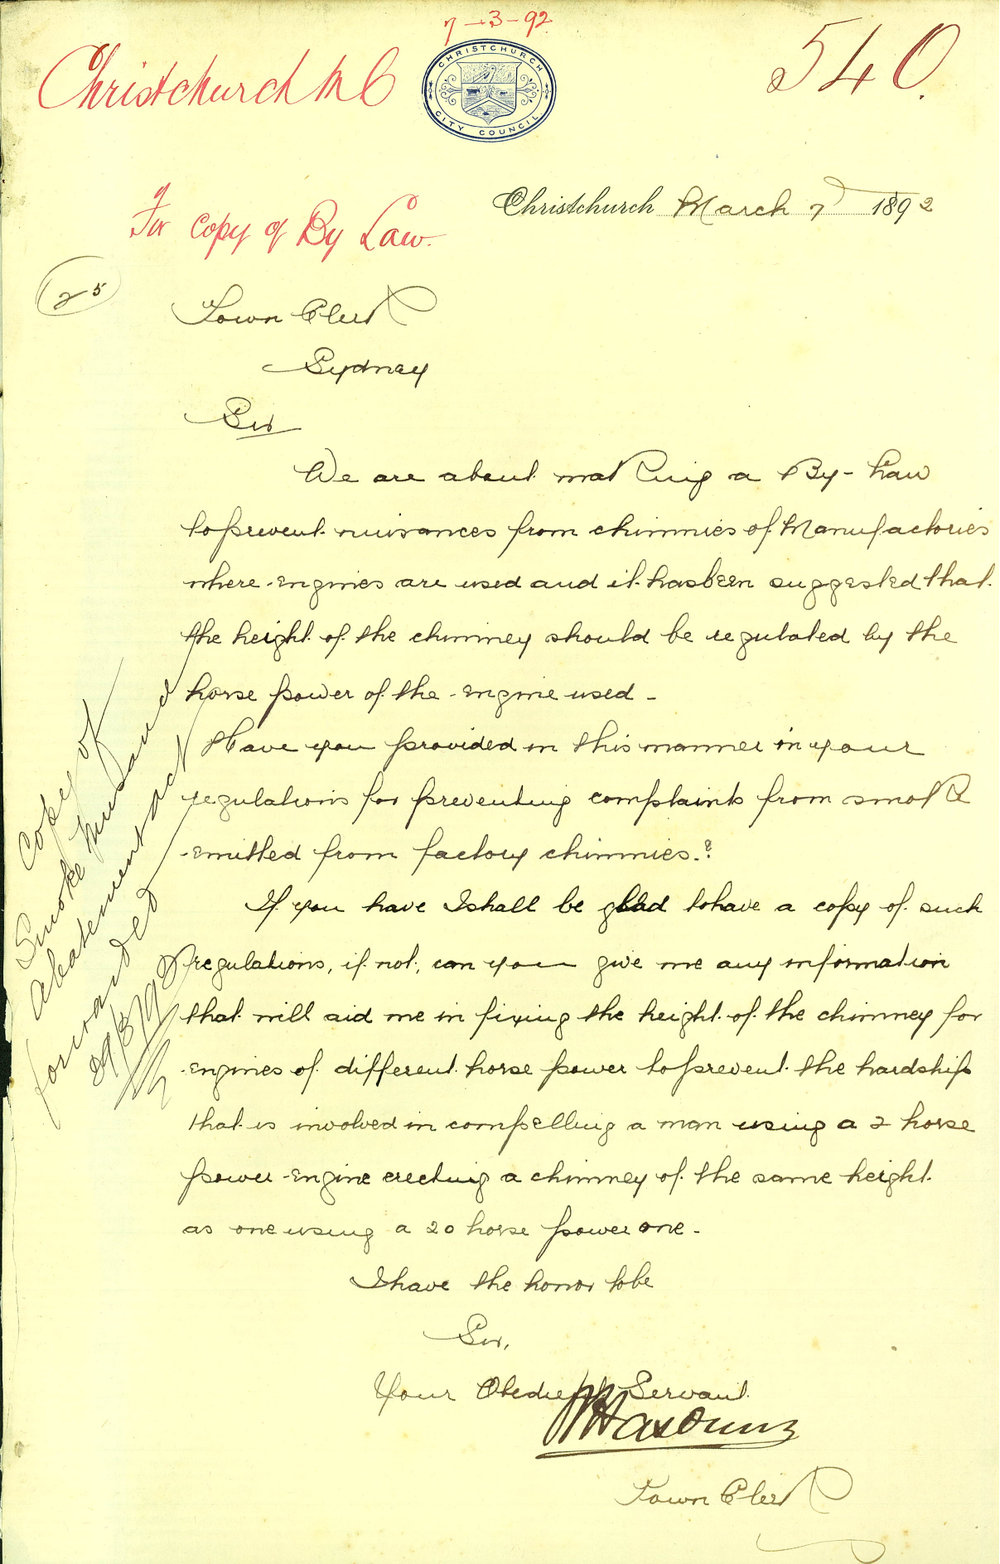 7-3-92
Christchurch M C
CHRISTCHURCH
CITY COUNCIL
540.
Christchurch March 7 1892
For Copy of By Law.
25
Town Clerk
Sydney
Sir
We are about making a By-Law
to prevent nuisances from chimnies of Manufactories
where engines are used and it has been suggested that
the height of the chimney should be regulated by the
horse power of the engine used -
Have you provided in this manner in your
regulations for preventing complaints from smoke
emitted from factory chimnies.?
If you have I shall be glad to have a copy of such
regulations, if not, can you give me any information
that will aid me in fixing the height of the chimney for
engines of different horse power to prevent the hardship
that is involved in compelling a man using a 2 horse
power engine erecting a chimney of the same height
as one using a 20 horse power one -
I have the honor to be
Sir,
Your Obedient Servant
Town Clerk
Copy of
Smoke Nuisance
Abatement Act
forwarded
29/3/92